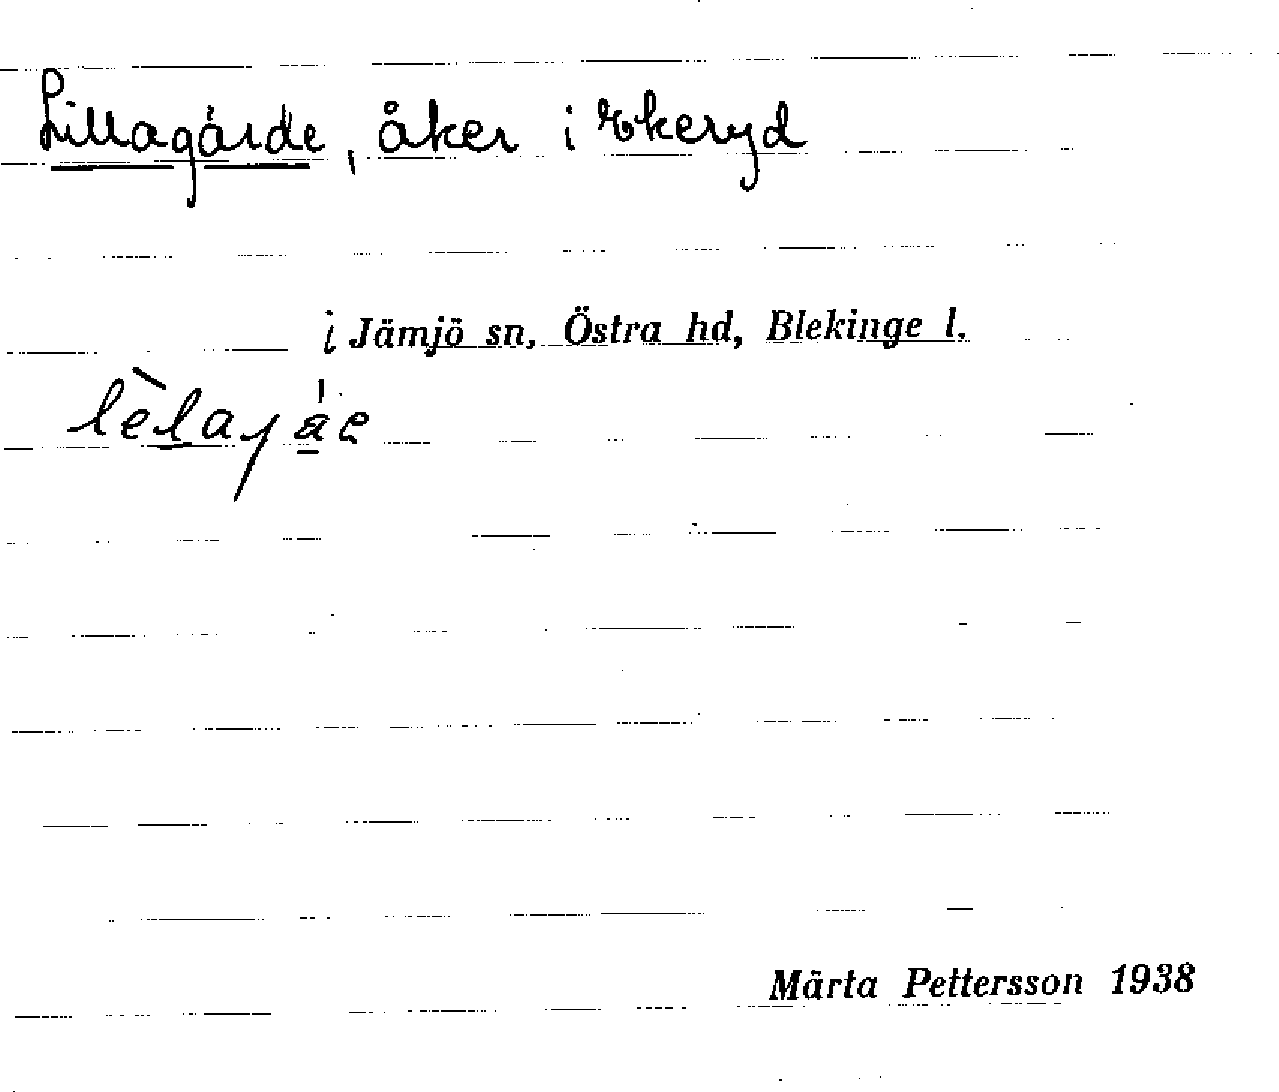 Lillagärde, åker i Ekeryd
i Jämjö sn, Östra hd, Blekinge l.
Märta Pettersson 1938